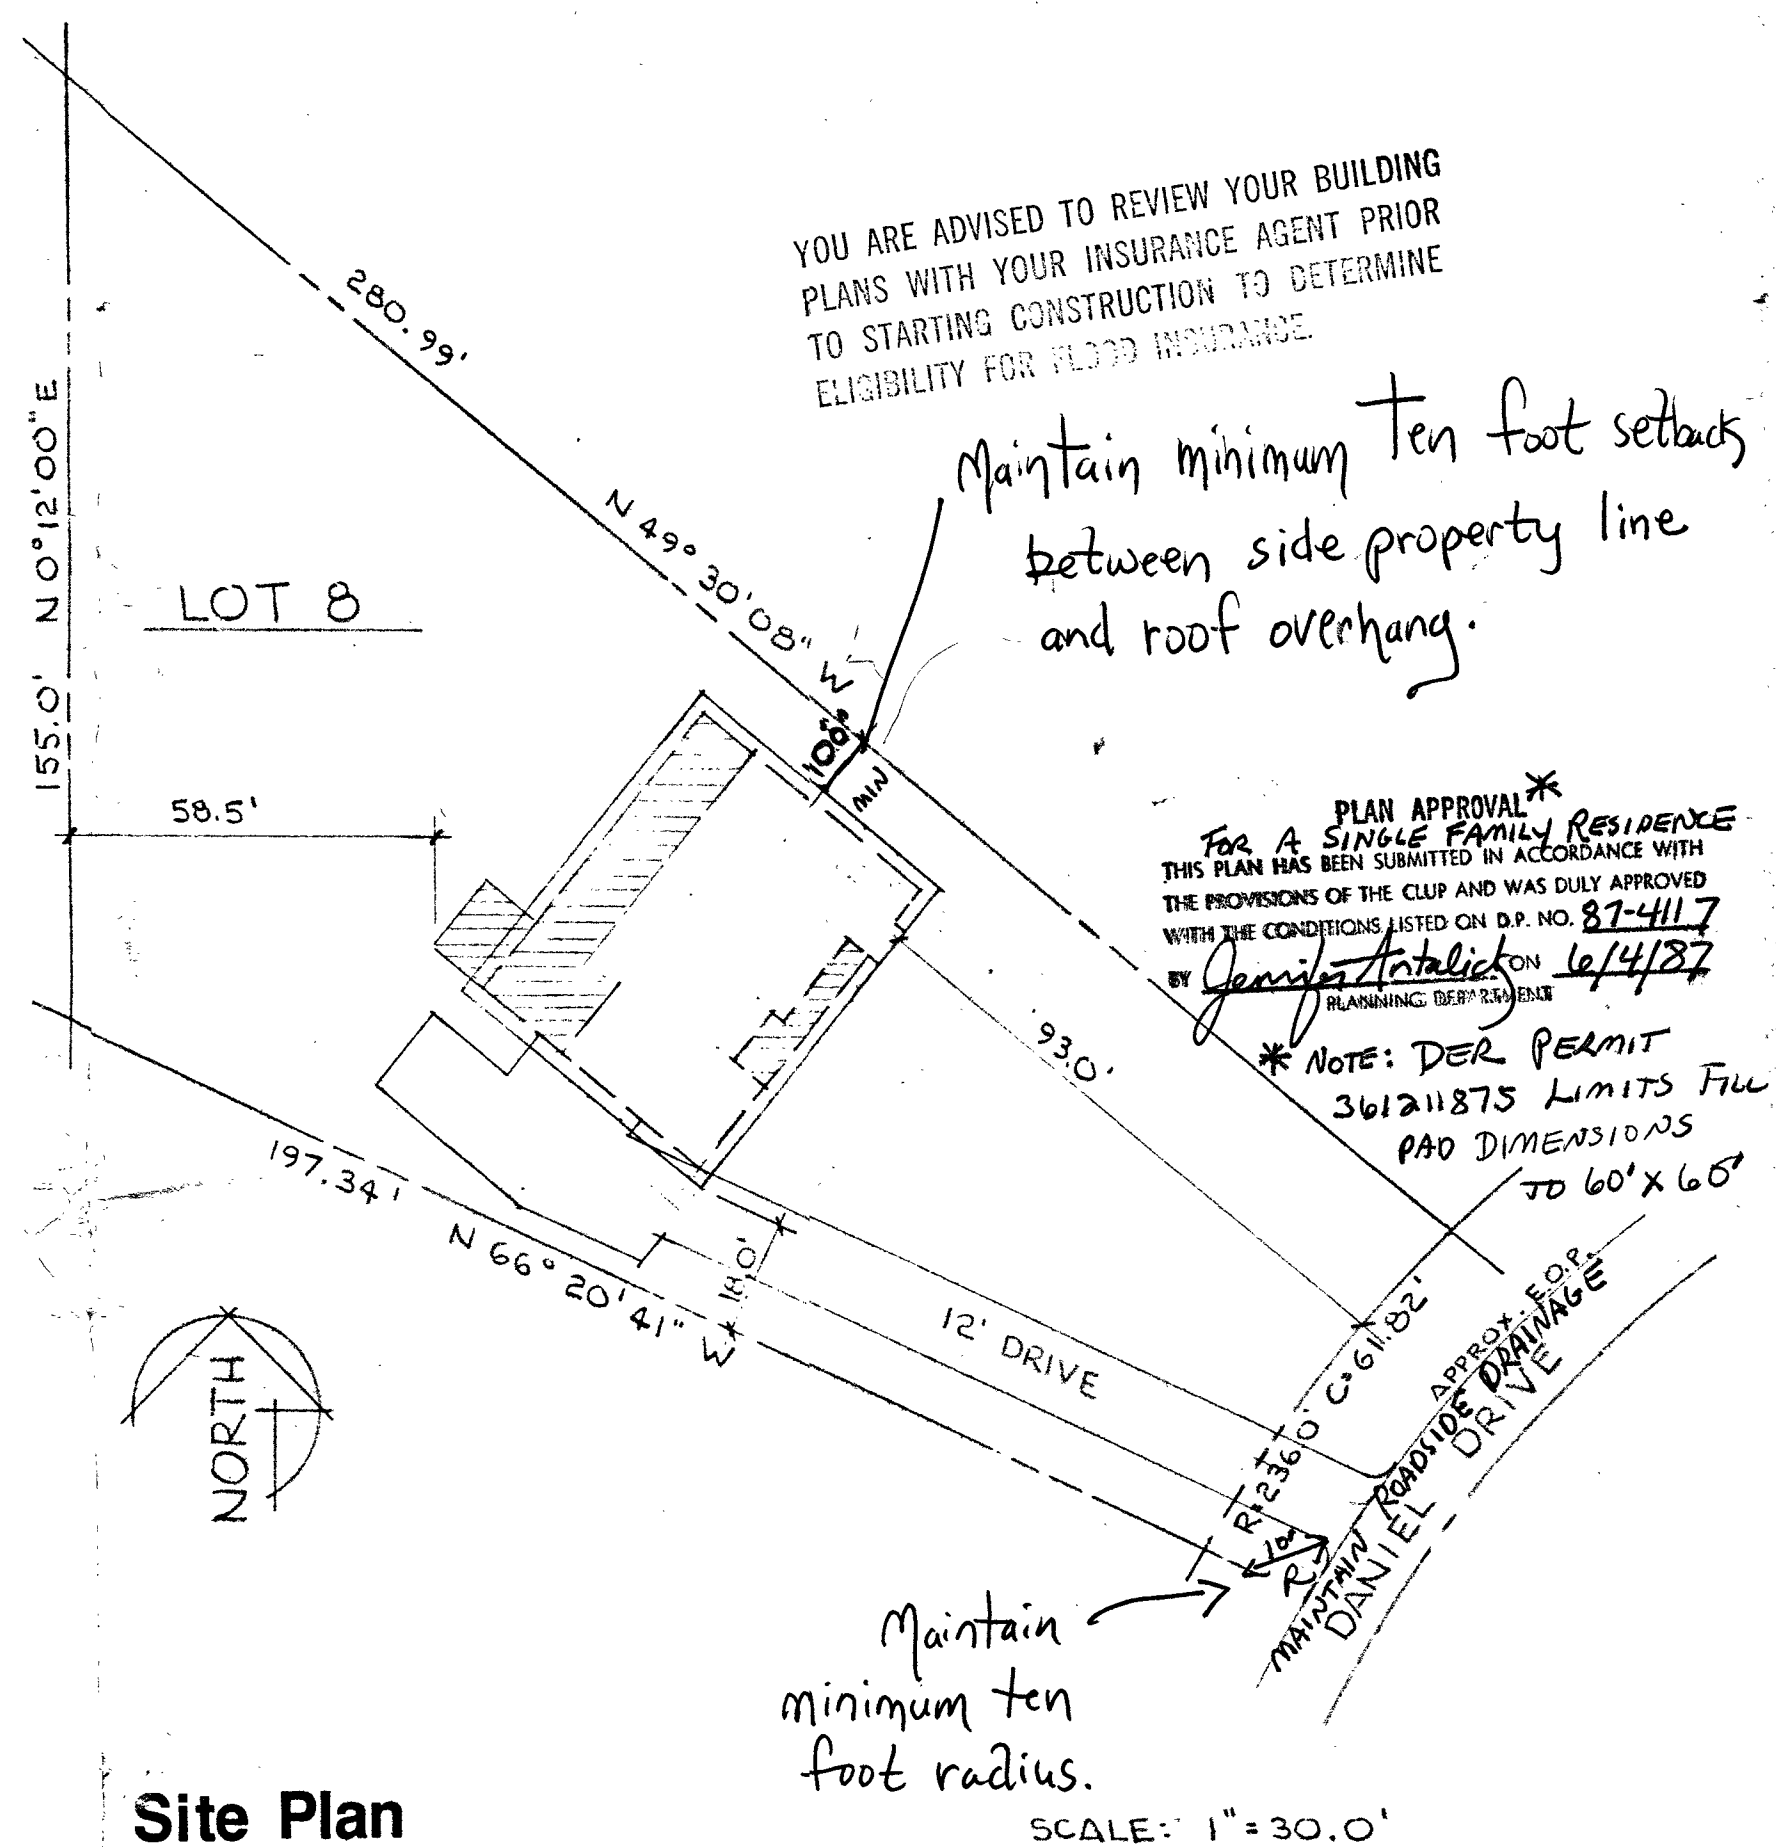 YOU ARE ADVISED TO REVIEW YOUR BUILDING
PLANS WITH YOUR INSURANCE AGENT PRIOR
TO STARTING CONSTRUCTION TO DETERMINE
ELIGIBILITY FOR FLOOD INSURANCE.
280.99'
N 49° 30' 08" W
Maintain minimum Ten foot setback
between side property line
and roof overhang.
155.0' N 0° 12' 00" E
LOT 8
58.5'
MIN
PLAN APPROVAL *
FOR A SINGLE FAMILY RESIDENCE
THIS PLAN HAS BEEN SUBMITTED IN ACCORDANCE WITH
THE PROVISIONS OF THE CLUP AND WAS DULY APPROVED
WITH THE CONDITIONS LISTED ON D.P. NO. 87-4117
BY Jennifer Antalick ON 6/4/87
PLANNING DEPARTMENT
* NOTE: DER PERMIT
361211875 LIMITS FILL
PAD DIMENSIONS
TO 60' X 60'
93.0'
197.34'
N 66° 20' 41" W
18.0'
12' DRIVE
R=236.0' C=611.82'
APPROX. E.O.P.
MAINTAIN ROADSIDE DRAINAGE
DANIEL DRIVE
10'
R
NORTH
Maintain
minimum ten
foot radius.
Site Plan
SCALE: 1" = 30.0'